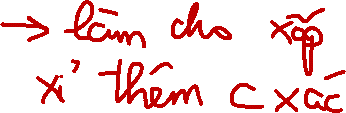 → làm cho xấp
xỉ thêm c xác